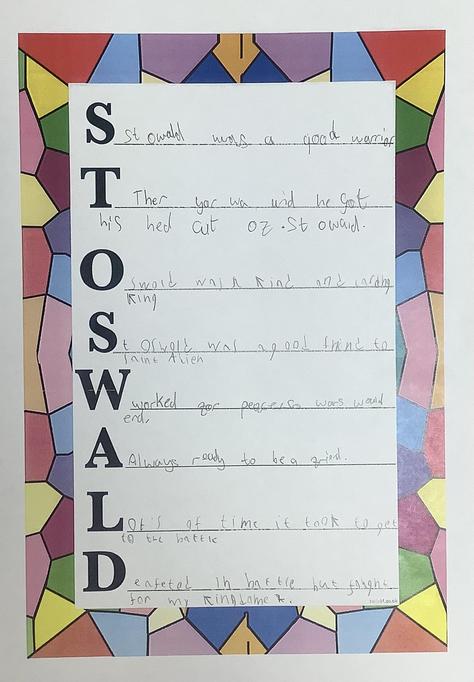 S St owald was a good warrior
T Ther yor wa wid he got
his hed cut oz. St owald.
O swold was a kind and caring
king
S t Oswold was a good frend to
Saint Aien
W worked gor peace so wars would
end.
A Always ready to be a griend.
L Ot's of time it took to get
to the battle
D eafeted in battle but faught
for my kingdame